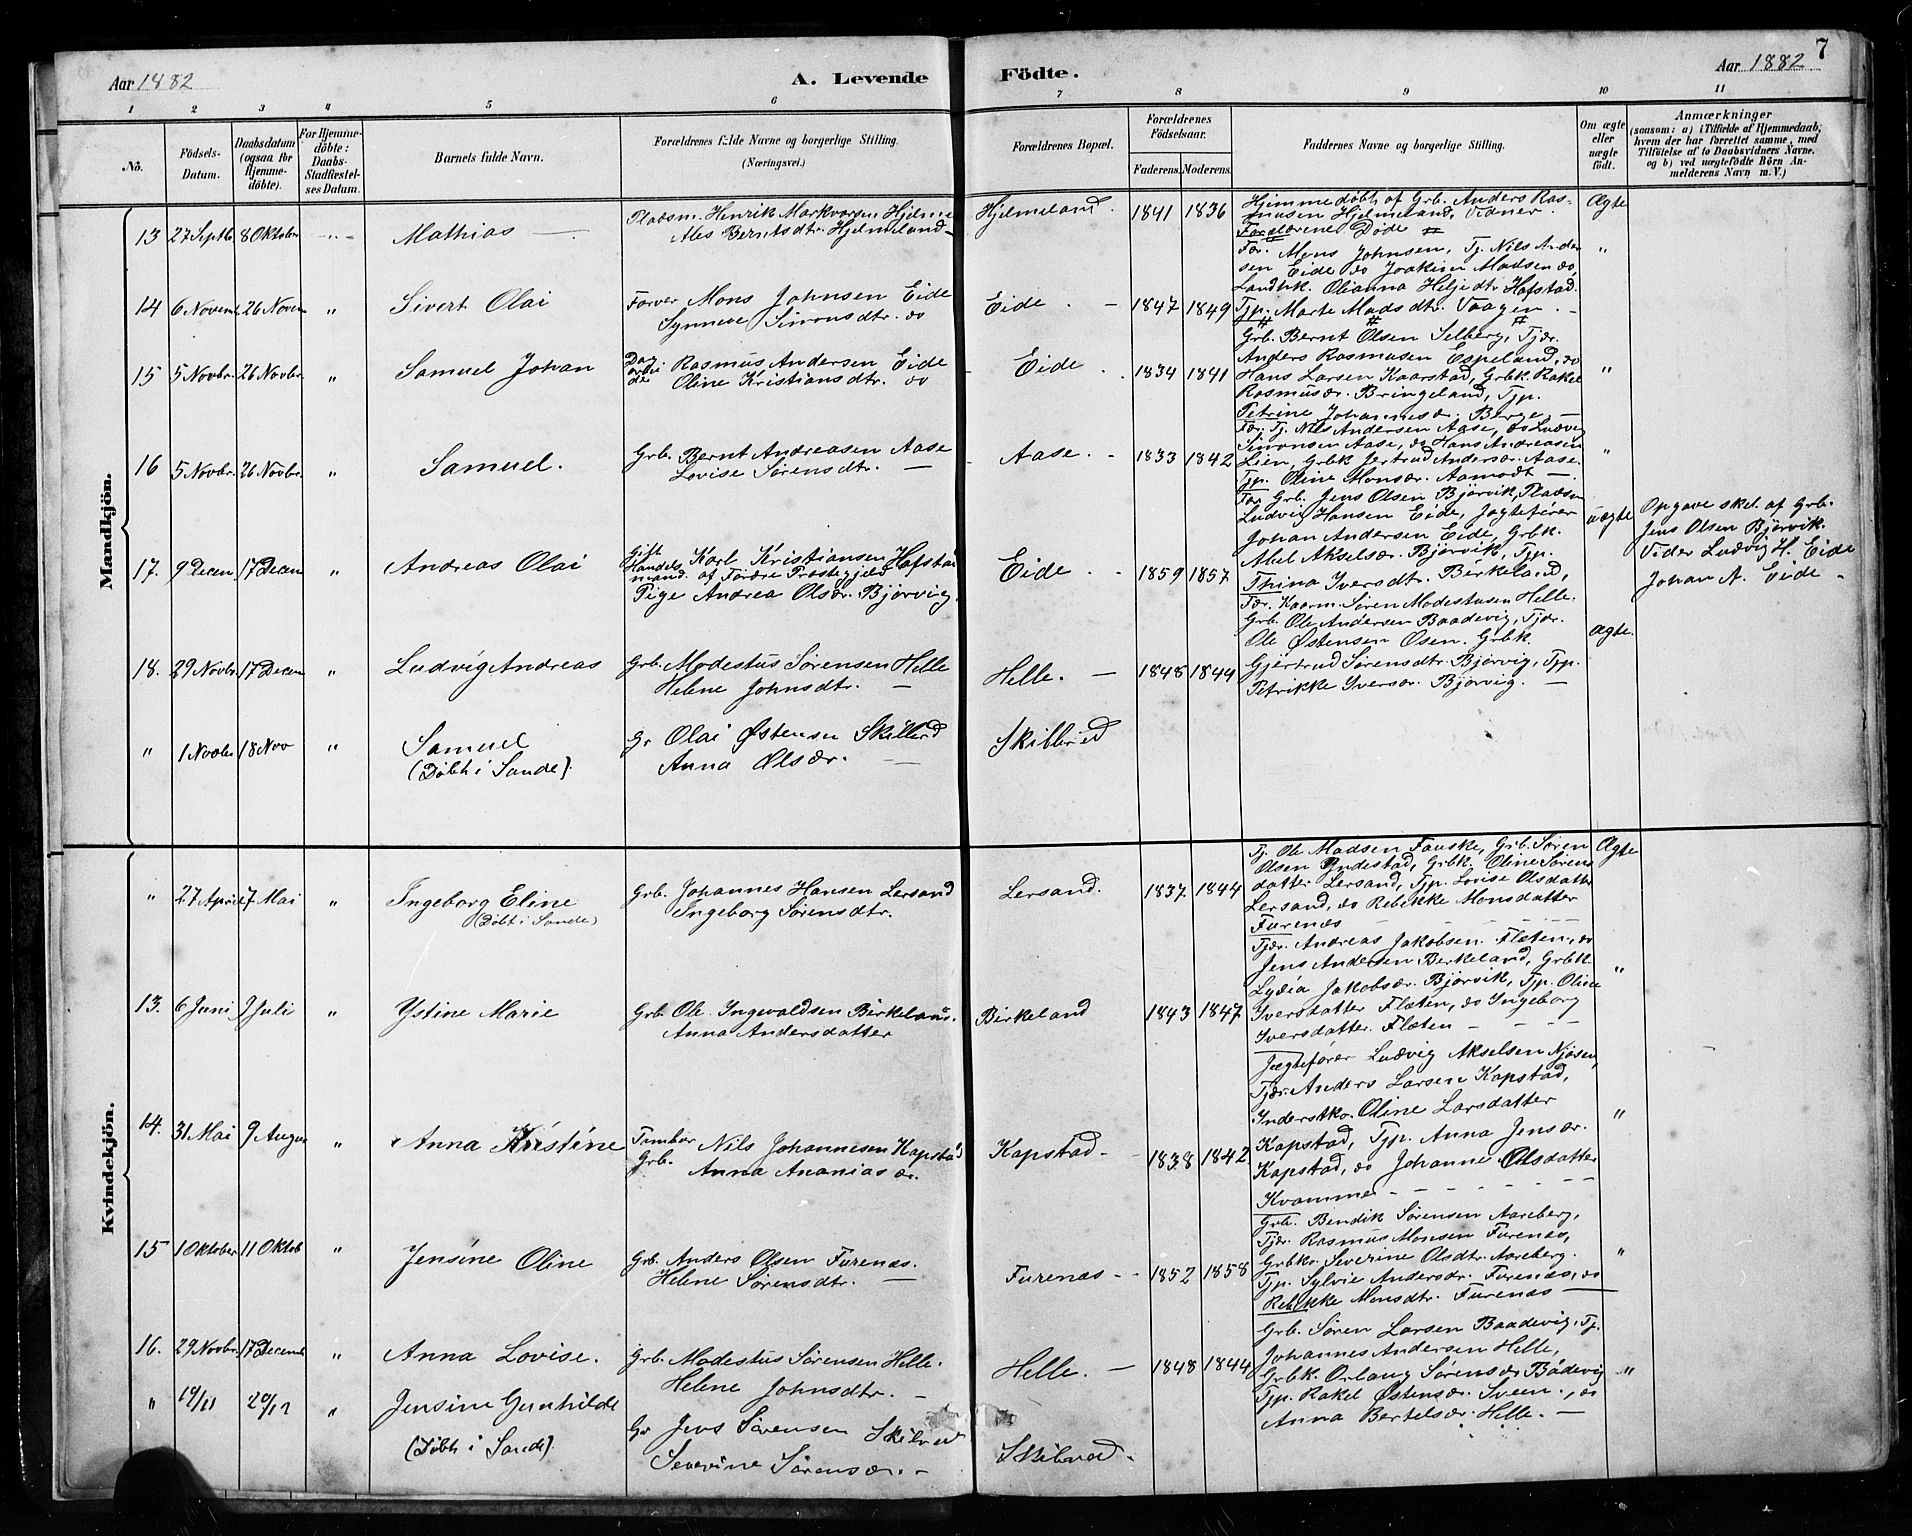 7
Aar 1882
A. Levende
Födte.
Aar 1882
1 2 3 4 5 6 7 8 9 10 11
No.
Födsels-
Datum.
Daabsdatum
(ogsaa for
Hjemme-
döbte).
For Hjemme-
döbte:
Daabs-
Stadfæstel-
ses Datum.
Barnets fulde Navn.
Forældrenes fulde Navne og borgerlige Stilling.
(Næringsvei.)
Forældrenes Bopæl.
Forældrenes
Födselsaar.
Faderens. Moderens.
Faddernes Navne og borgerlige Stilling.
Om ægte
eller
uægte
födt.
Anmærkninger
(saasom: a) i Tilfælde af Hjemmedaab,
hvem der har forrettet samme, med
Tilföielse af to Daabsvidners Navne,
og b) ved uægtefödte Börn An-
melderens Navn m. V.)
Mandkjön.
13 27 Septb. 8 Oktober
Mathias —
Pladsm. Henrik Markvorsen Hjelme
Ales Berntsdtr. Hjelmeland
Hjelmeland.
1841 1836
Hjemmedøbt af Grb. Anders Ras-
musen Hjelmeland, Vidner
Forældrene. Døde #
Ægte
14 6 Novemb 26 Novem „
Sivert Olai
Farver Mons Johnsen Eide
Synneve Simonsdtr. do
Eide. —
1847 1849
Fær. Mons Johnsen, Tj. Nils Ander-
sen Eide do Joakim Madsen do,
Landhk. Olianna Heljedtr. Hafstad.
Tjp. Marte Madsdtr. Vaagen. —
„
15 5 Novbr. 26 Novbr. „
Samuel Johan
Dag
arbei
de
Rasmus Andersen Eide
Oline Kristiansdtr. do
Eide
1834 1841
Grb. Bernt Olsen Selberg, Tjær.
Anders Rasmusen Espeland, do
Hans Larsen Kaarstad, Grbk. Rakel
Rasmusdr. Bringeland, Tjp.
Petrine Johannesdr. Berge. —
„
16 5 Novbr. 26 Novbr. „
Samuel.
Grb. Bernt Andreasen Aase
Lovise Sørensdtr. —
Aase. -
1833 1842
Fær. Tj. Nils Andersen Aase, do Ludvig
Simonsen Aase, do Hans Andreasen
Lien, Grbk Jertrud Andersdr. Aase.
Tjp. Oline Monsdr. Aamodt —
„
17. 9 Decem 17 Decem „
Andreas Olai
Gift
Handels
mand.
Karl Kristiansen Hafstad
af Førde Præstegjeld
Pige Andrea Olsdr. Bjørvig.
Eide. -
1859 1857
Fær. Grb. Jens Olsen Bjørvik, Pladsm
Ludvig Hansen Eide, Jagtefører
Johan Andersen Eide, Grbk.
Abel Akselsdr. Bjørvik, Tjp.
Thina Iversdtr. Birkeland,
uægte
Opgave sket af Grb.
Jens Olsen Bjørvik.
Vider Ludvig H. Eide
Johan A. Eide -
18. 29 Novbr. 17 Decem „
Ludvig Andreas
Grb. Modestus Sørensen Helle
Helene Johnsdtr. —
Helle. —
1848 1844
Fær. Kaarm. Søren Modestusen Helle.
Grb. Ole Andersen Baadevig, Tjær.
Ole Østensen Osen. Grbk.
Gjertrud Sørensdtr. Bjørvig, Tjp.
Petrikke Iversdr. Bjørvig. —
Ægte.
„ 1 Novbr 18 Nov „
Samuel
(Døbt i Sande).
Gr Olai Østensen Skilbred
Anna Olsdr. —
Skilbred
Kvindekjön.
„ 27 April 7 Mai „
Ingeborg Eline
(Døbt i Sande)
Grb. Johannes Hansen Lersand
Ingeborg Sørensdtr.
Lersand.
1837 1844
Tj. Ole Madsen Fauske, Grb. Søren
Olsen Yndestad, Grbk. Oline Sørens
datter Lersand, Tjp. Lovise Olsdatter
Lersand, do Rebekke Monsdatter
Furenæs — — — —
Ægte
13. 6 Juni 9 Juli „
Ystine Marie
Grb. Ole Ingvaldsen Birkeland.
Anna Andersdatter
Birkeland
1843 1847
Tjær. Andreas Jakobsen Flæten, do
Jens Andersen Birkeland, Grbk.
Lydia Jakobsdr. Bjørvik, Tjp. Oline
Iversdatter Flæten, do Ingeborg
Iversdatter. Flæten — — —
„
14. 31 Mai 9 Augus „
Anna Kristine
Tømker
Grb.
Nils Johannesen Kapstad
Anna Ananiasdr.
Kapstad -
1838 1842
Jægtefører Ludvig Akselsen Njøsen,
Tjær. Anders Larsen Kapstad,
Inderstko. Oline Larsdatter
Kapstad, Tjp. Anna Jensdr.
Kapstad, do Johanne Olsdatter
Kvamme - - - - - -
„
15 1 Oktober 11 Oktob „
Jensine Oline
Grb. Anders Olsen Furenæs.
Helene Sørensdtr. —
Furenæs - -
1852 1858
Grb. Bendik Sørensen Aareberg,
Tjær. Rasmus Monsen Furenæs,
Grbko. Severine Olsdtr. Aareberg.
Tjp. Sylvie Andersdr. Furenæs, do
Rebekke Monsdtr. Furenæs —
„
16. 29 Novbr. 17 Decemb „
Anna Lovise.
Grb. Modestus Sørensen Helle.
Helene Johnsdtr. —
Helle. —
1848 1844
Grb. Søren Larsen Baadevig, Tj.
Johannes Andersen Helle,
Grbk. Orlaug Sørensdr Bådevig
Tjp. Rakel Østensdr. Sveen., do
Anna Bertelsdr. Helle. —
„
„ 19/11 20/12 „
Jensine Gunhilde
(Døbt i Sande).
Gr Jens Sørensen Skilbred
Severine Sørensdr. -
Skilbred -